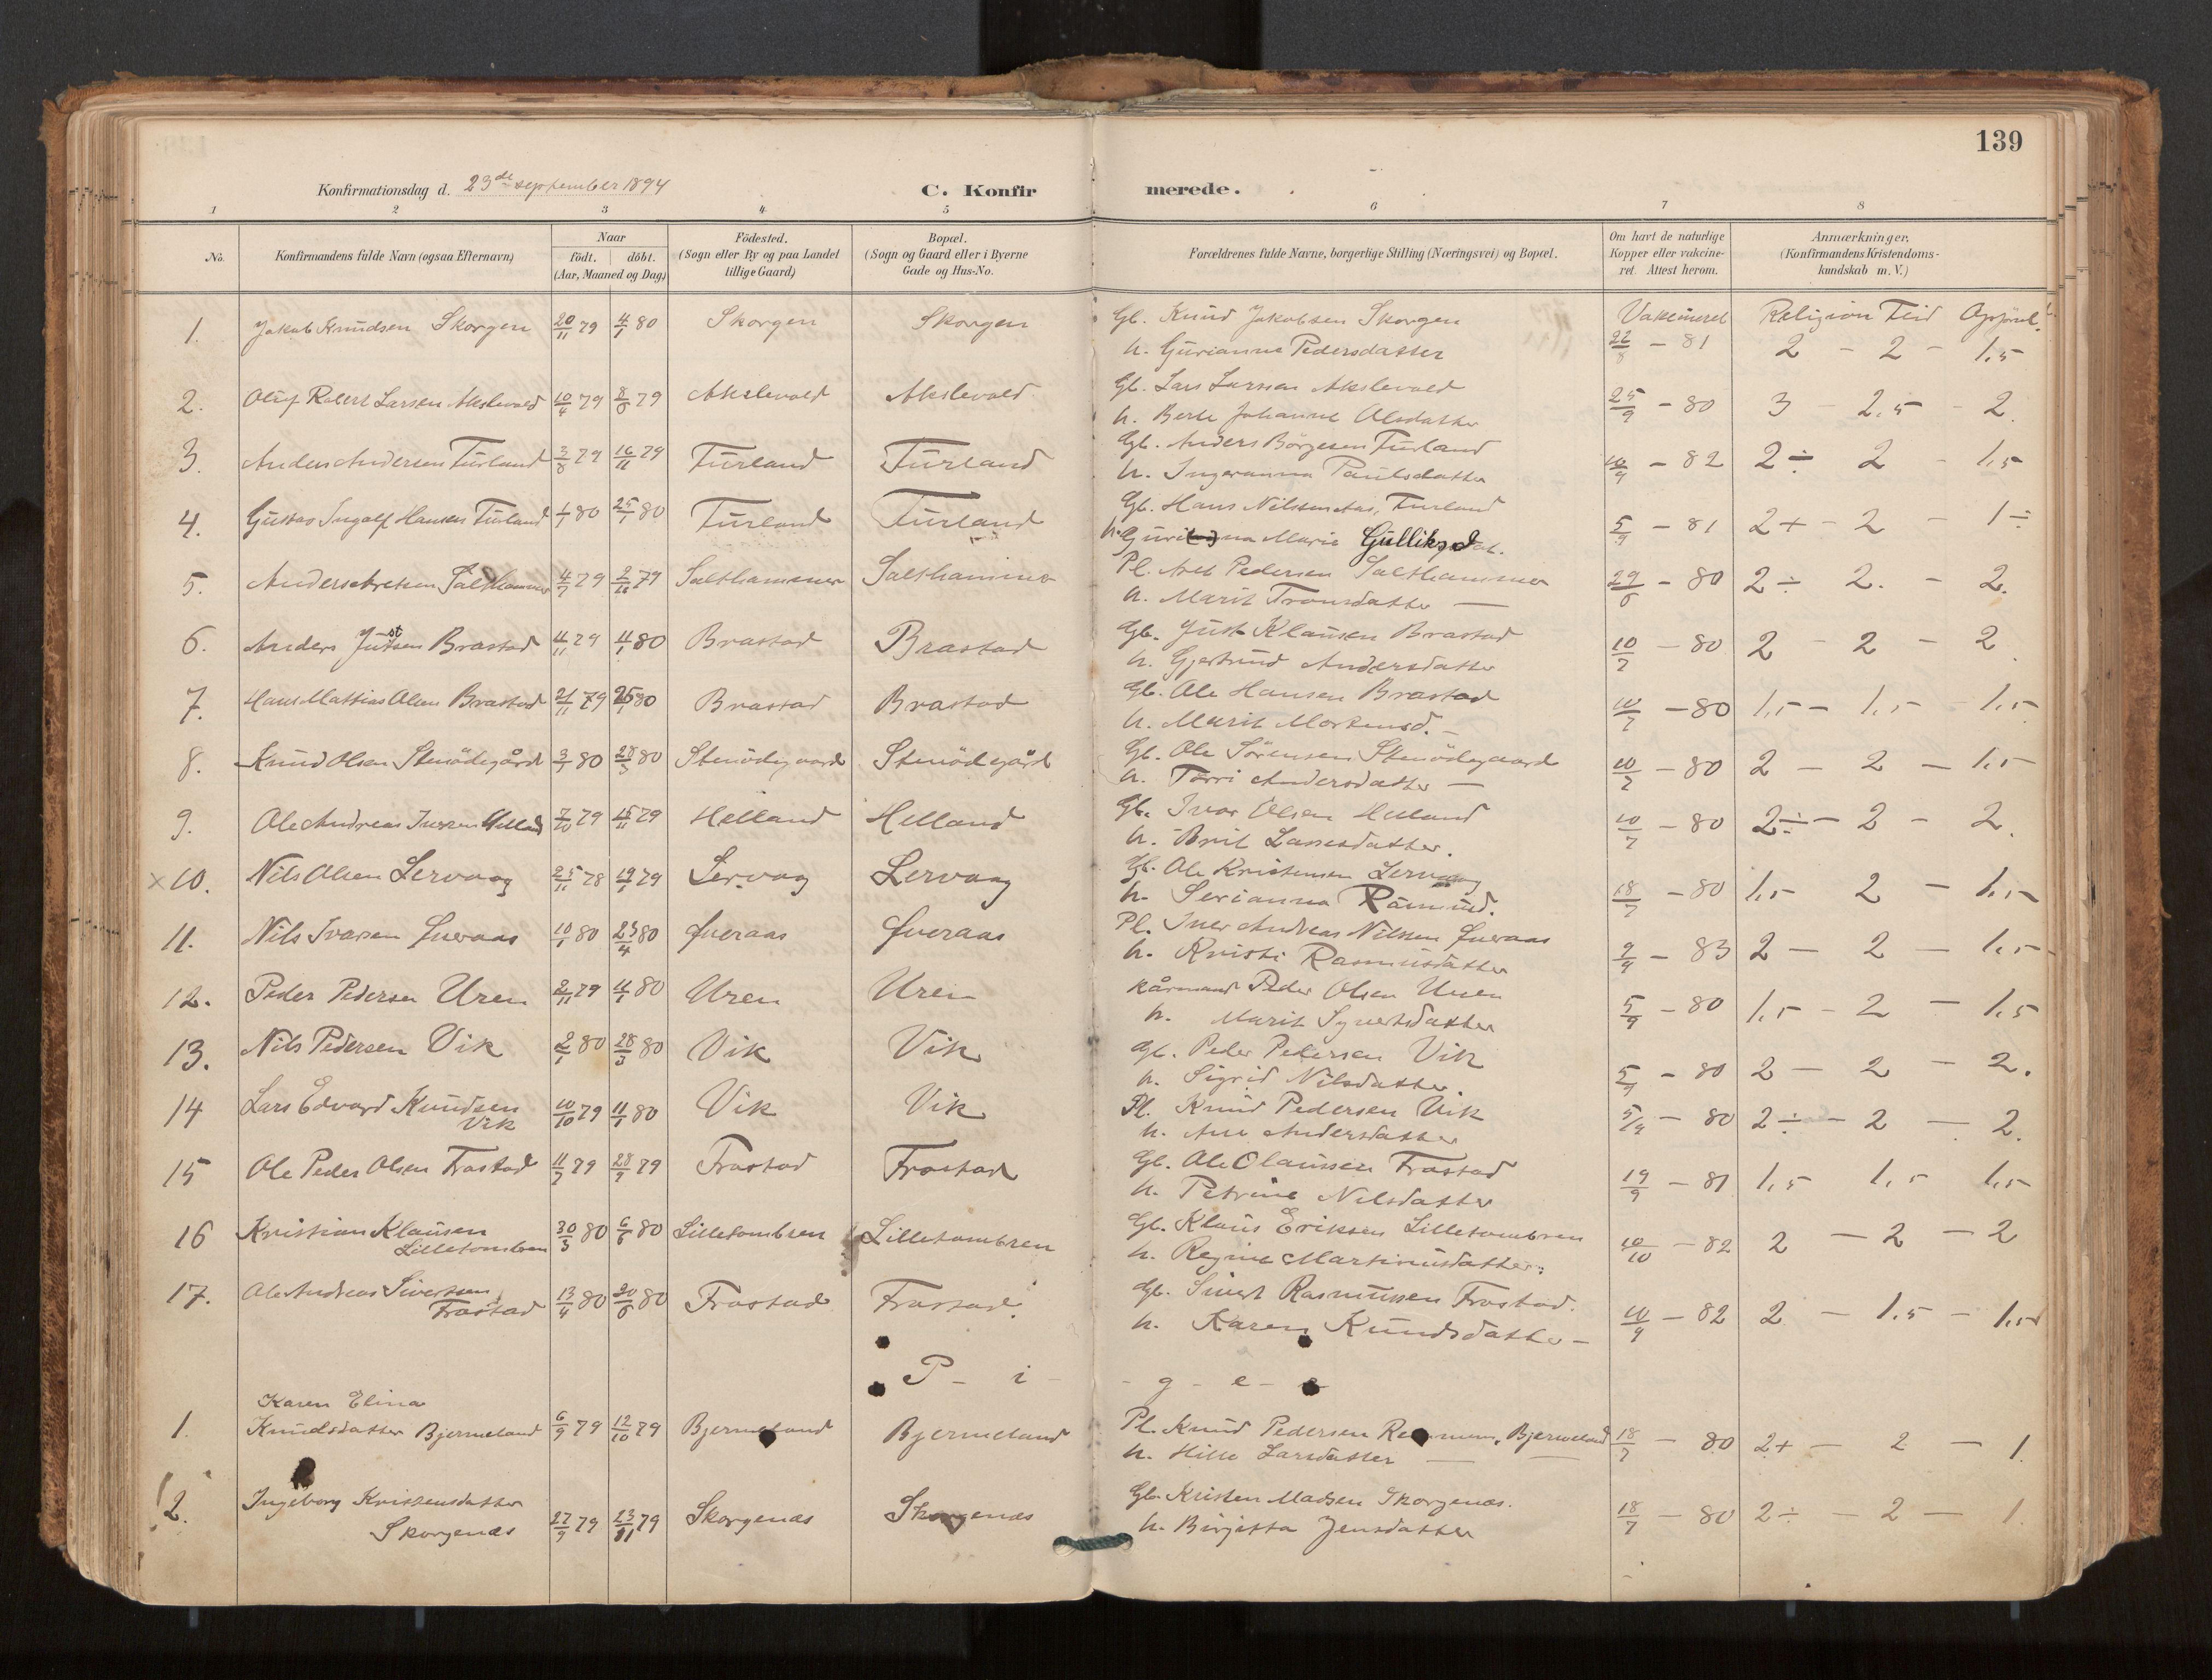 139
Konfirmationsdag d. 23de september 1894 C. Konfirmerede.
1 2 3 4 5 6 7 8
No. Konfirmandens fulde Navn (ogsaa Efternavn) Naar födt. döbt. (Aar, Maaned og Dag) Födested. (Sogn eller By og paa Landet tillige Gaard) Bopæl. (Sogn og Gaard eller i Byerne Gade og Hus-No. Forældrenes fulde Navne, borgerlige Stilling (Næringsvei) og Bopæl. Om havt de naturlige Kopper eller vakcineret. Attest herom. Anmærkninger. (Konfirmandens Kristendomskundskab m. V.)
Vakcineret Religion Flid Opförsl.
1. Jakob Knudsen Skorgen 20/11 79 4/1 80 Skorgen Skorgen Gb. Knud Jakobsen Skorgen
h. Gurianna Pedersdatter 26/8 - 81 2 - 2 - 1.5
2. Oluf Robert Larsen Akslevold 10/4 79 8/6 79 Akslevold Akslevold Gb. Lars Larssen Akslevold
h. Berte Johanne Olsdatter 25/9 - 80 3 2,5 - 2
3. Anders Andersen Furland 3/8 79 16/11 79 Furland Furland Gb. Anders Börgesen Furland
h. Ingeranna Paulsdatter 10/9 - 82 2÷ 2 - 1,5
4. Gustav Ingolf Hansen Furland 1/1 80 25/1 80 Furland Furland Gb. Hans Nilssen Furland
h. Marie Gulliksdat. 5/9 - 81 2+ - 2 - 1÷
5. Anders Aretsen Salthammer 4/7 79 2/11 79 Salthammer Salthammer Pl. Aret Pedersen Salthammer
h. Marit Tronsdatter — 29/6 - 80 2÷ 2. - 2.
6. Anders Justsen Brastad 4/11 79 4/1 80 Brastad Brastad Gb. Just Klausen Brastad
h. Gjertrud Andersdatter 10/7 - 80 2 - 2 - 2
7. Hans Mattias Olsen Brastad 21/11 79 25/1 80 Brastad Brastad Gb. Ole Hansen Brastad
h. Marit Mortensd. - 10/7 - 80 1,5 - 1,5 - 1,5
8. Knud Olsen Stenödegård 3/1 80 28/3 80 Stenödegaard Stenödegård Gb. Ole Sörensen Stenödegaard
h. Torri Andersdatter — 10/7 - 80 2 - 2 - 1.5
9. Ole Andreas Iversen Helland 7/10 79 15/11 79 Helland Helland Gb. Ivar Olsen Helland
h. Brit Lassesdatter. 10/7 - 80 2÷ - 2 - 2.
x10. Nils Olsen Lervaag 25/11 78 19/1 79 Lervag Lervaag Gb. Ole Kristensen Lervaag
h. Serianna 18/7 - 80 1,5 2 - 1.5
11. Nils Ivarsen Överaas 10/1 80 25/4 80 Överaas Överaas Pl. Iver Andreas Nilssen Överaas
h. Kristi Rasmusdatter 9/9 - 83 2 - 2 - 1.5
12. Peder Pedersen Uren 2/11 79 4/1 80 Uren Uren Kårmand Peder Olsen Uren
h. Marit Syvertsdatter 5/9 - 80 1,5 - 2 - 1.5
13. Nils Pedersen Vik 2/1 80 28/3 80 Vik Vik Gb. Peder Pedersen Vik
h. Sigrid Nilsdatter. 5/9 - 80 2 - 2 - 2.
14 Lars Edvard Knudsen Vik 10/10 79 11/1 80 Vik Vik Pl. Knud Pedersen Vik
h. Ane Andersdatter 5/9 - 80 2÷ - 2 - 2.
15 Ole Peder Olsen Frostad 11/7 79 28/9 79 Frostad Frostad Gb. Ole Olaussen Frostad
h. Petrine Nilsdatter 19/9 - 81 1,5 1,5 1,5
16 Kristian Klausen Lilletombren 30/3 80 6/6 80 Lilletombren Lilletombren Gb. Klaus Eriksen Lilletombren
h. Regine Martinusdatter. 10/10 - 82 2 - 2 - 2
17. Ole Andreas Sivertsen Frostad 13/4 80 20/6 80 Frostad Frostad. Gb. Sivert Rasmussen Frostad.
h. Karen Knudsdatter - 10/9 - 82 2 - 1.5 - 1.5
P - i - g - e - r
1. Karen Elina Knudsdatter Bjermeland 6/9 79 12/10 79 Bjermeland Bjermeland Pl. Knud Pedersen Bjermeland
h. Hille Larsdatter — 18/7 - 80 2+ - 2 - 1.
2. Ingeborg Kristensdatter Skorgenæs 27/9 79 23/11 79 Skorgenæs Skorgenæs Gb. Kristen Madsen Skorgenæs.
h. Birgitta Jensdatter 18/7 - 80 2÷ - 2 - 1.